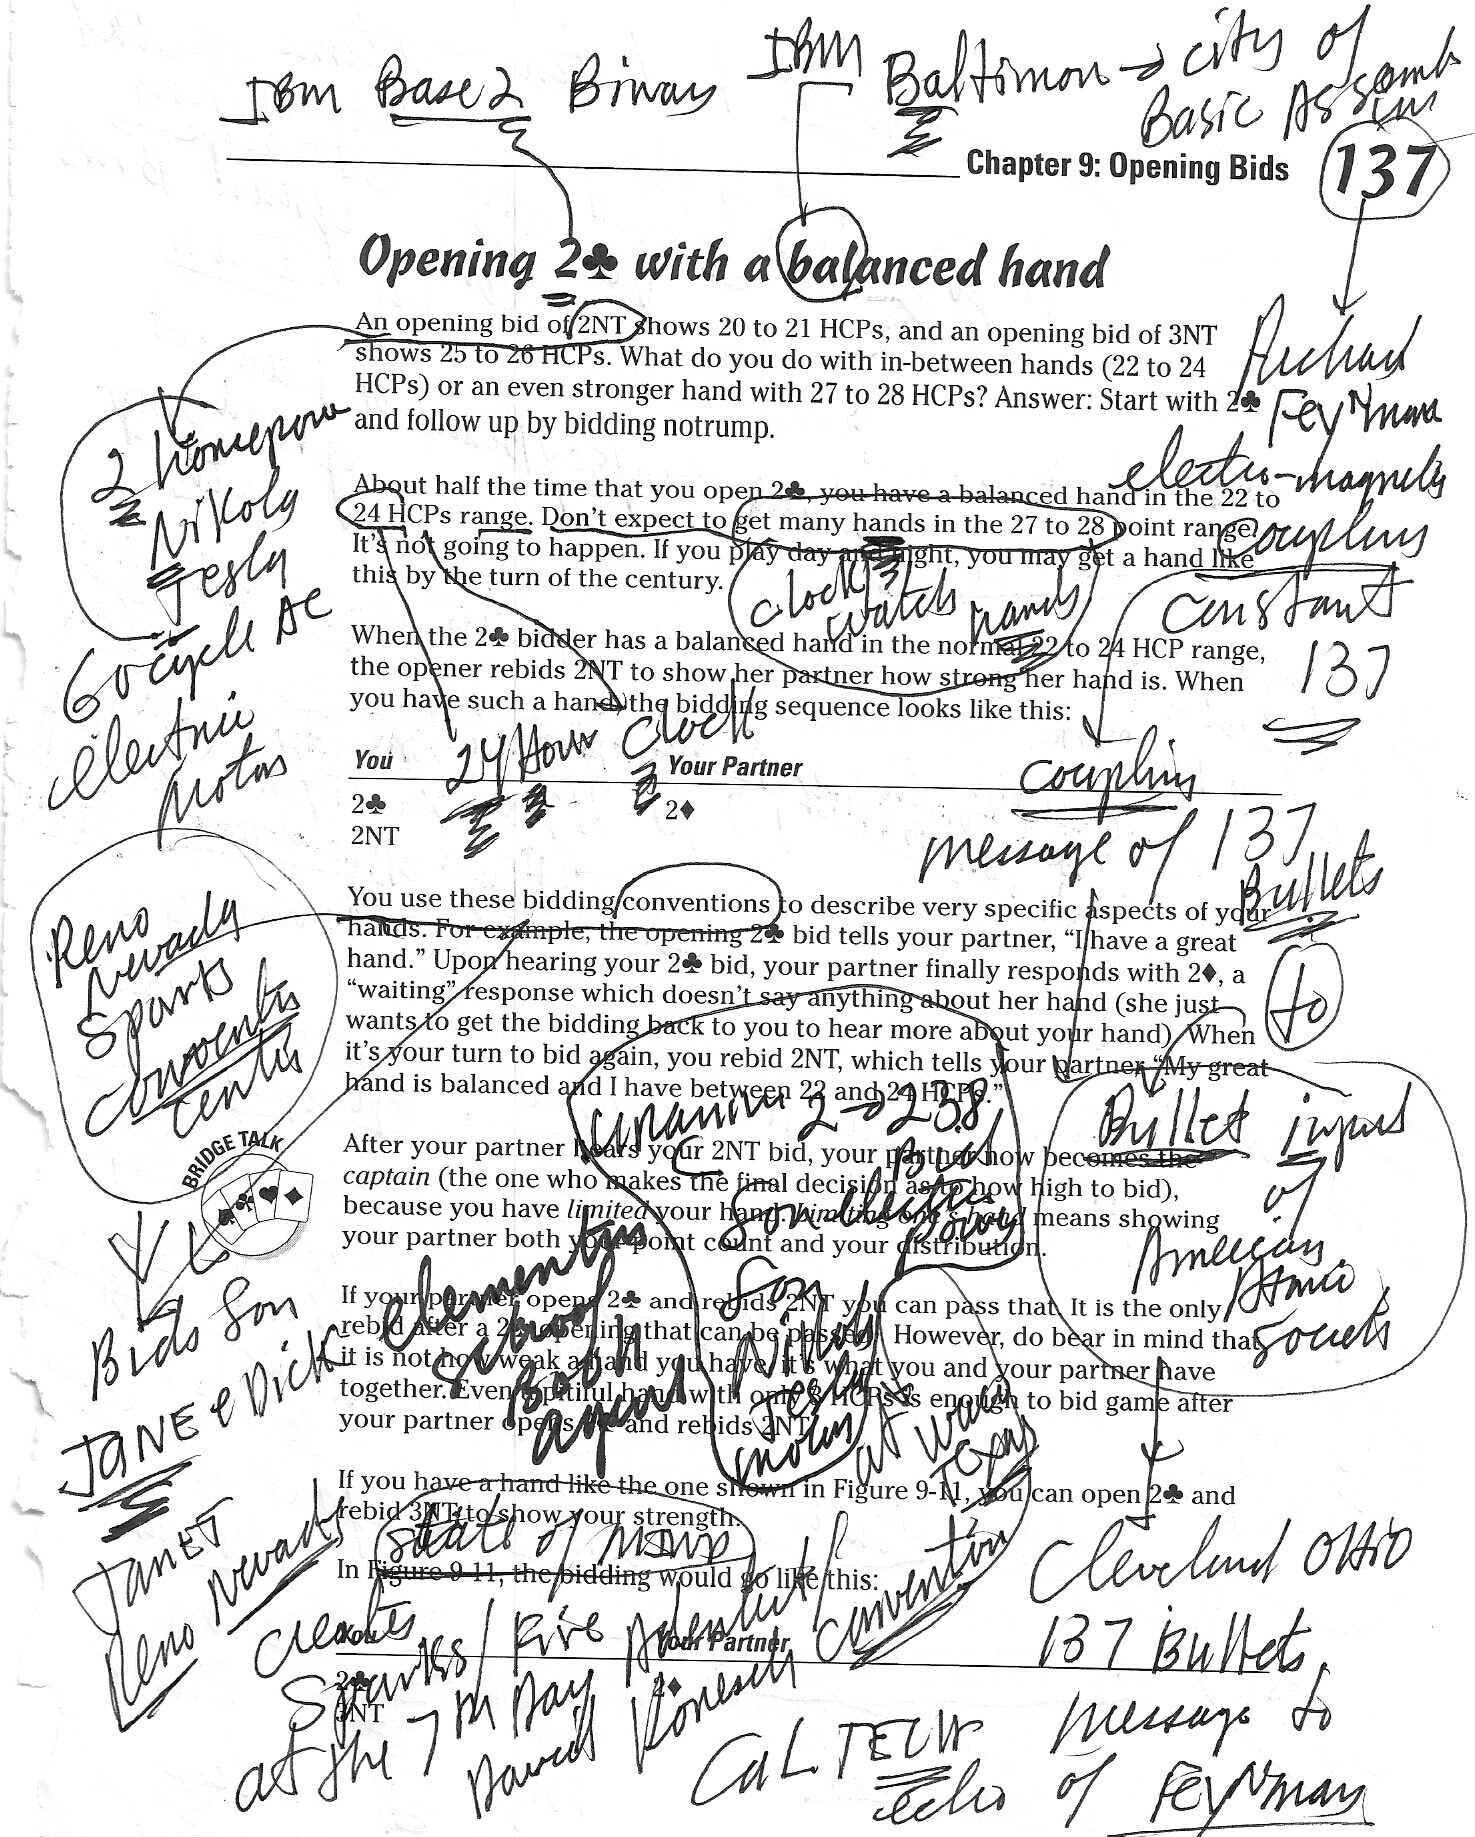 IBM Base 2 Binary IBM Baltimore → city of
Basic Assembly
Chapter 9: Opening Bids 137
Opening 2♣ with a balanced hand
An opening bid of 2NT shows 20 to 21 HCPs, and an opening bid of 3NT
shows 25 to 26 HCPs. What do you do with in-between hands (22 to 24
HCPs) or an even stronger hand with 27 to 28 HCPs? Answer: Start with 2♣
and follow up by bidding notrump.
Richard
Feynman
electro-magnetic
coupling
constant
137
2 horsepower
Nikola
Tesla
60 cycle AC
electric
motor
About half the time that you open 2♣, you have a balanced hand in the 22 to
24 HCPs range. Don't expect to get many hands in the 27 to 28 point range.
It's not going to happen. If you play day and night, you may get a hand like
this by the turn of the century.
clock
watch hands
When the 2♣ bidder has a balanced hand in the normal 22 to 24 HCP range,
the opener rebids 2NT to show her partner how strong her hand is. When
you have such a hand, the bidding sequence looks like this:
24 Hour clock
You Your Partner
2♣ 2♦
2NT
coupling
message of 137
Bullets
to
You use these bidding conventions to describe very specific aspects of your
hands. For example, the opening 2♣ bid tells your partner, “I have a great
hand.” Upon hearing your 2♣ bid, your partner finally responds with 2♦, a
“waiting” response which doesn't say anything about her hand (she just
wants to get the bidding back to you to hear more about your hand). When
it's your turn to bid again, you rebid 2NT, which tells your partner “My great
hand is balanced and I have between 22 and 24 HCPs.”
Reno
Nevada
Sparks
Convention
Center
BRIDGE TALK
Uranium 2 → 238
Bid
Son electric
power
Son
Nikola
Tesla
motor
at Waco
Texas
Bullet
of
American
Atomic
Society
After your partner hears your 2NT bid, your partner now becomes the
captain (the one who makes the final decision as to how high to bid),
because you have limited your hand. Limiting one's hand means showing
your partner both your point count and your distribution.
elementary
school
Bath
If your partner opens 2♣ and rebids 2NT you can pass that. It is the only
rebid after a 2♣ opening that can be passed. However, do bear in mind that
it is not how weak a hand you have, it's what you and your partner have
together. Even a pitiful hand with only 3 HCPs is enough to bid game after
your partner opens 2♣ and rebids 2NT.
Bids Son
JANE & Dick
JANET
Reno Nevada
If you have a hand like the one shown in Figure 9-11, you can open 2♣ and
rebid 3NT to show your strength.
state of MIND
In Figure 9-11, the bidding would go like this:
You Your Partner
2♣ 2♦
3NT
creates
Sparks / Fire Adventist Convention
at the 7th Day
David Koresh
Cleveland OHIO
137 Bullets
message to
Cal TECH
echo of Feynman